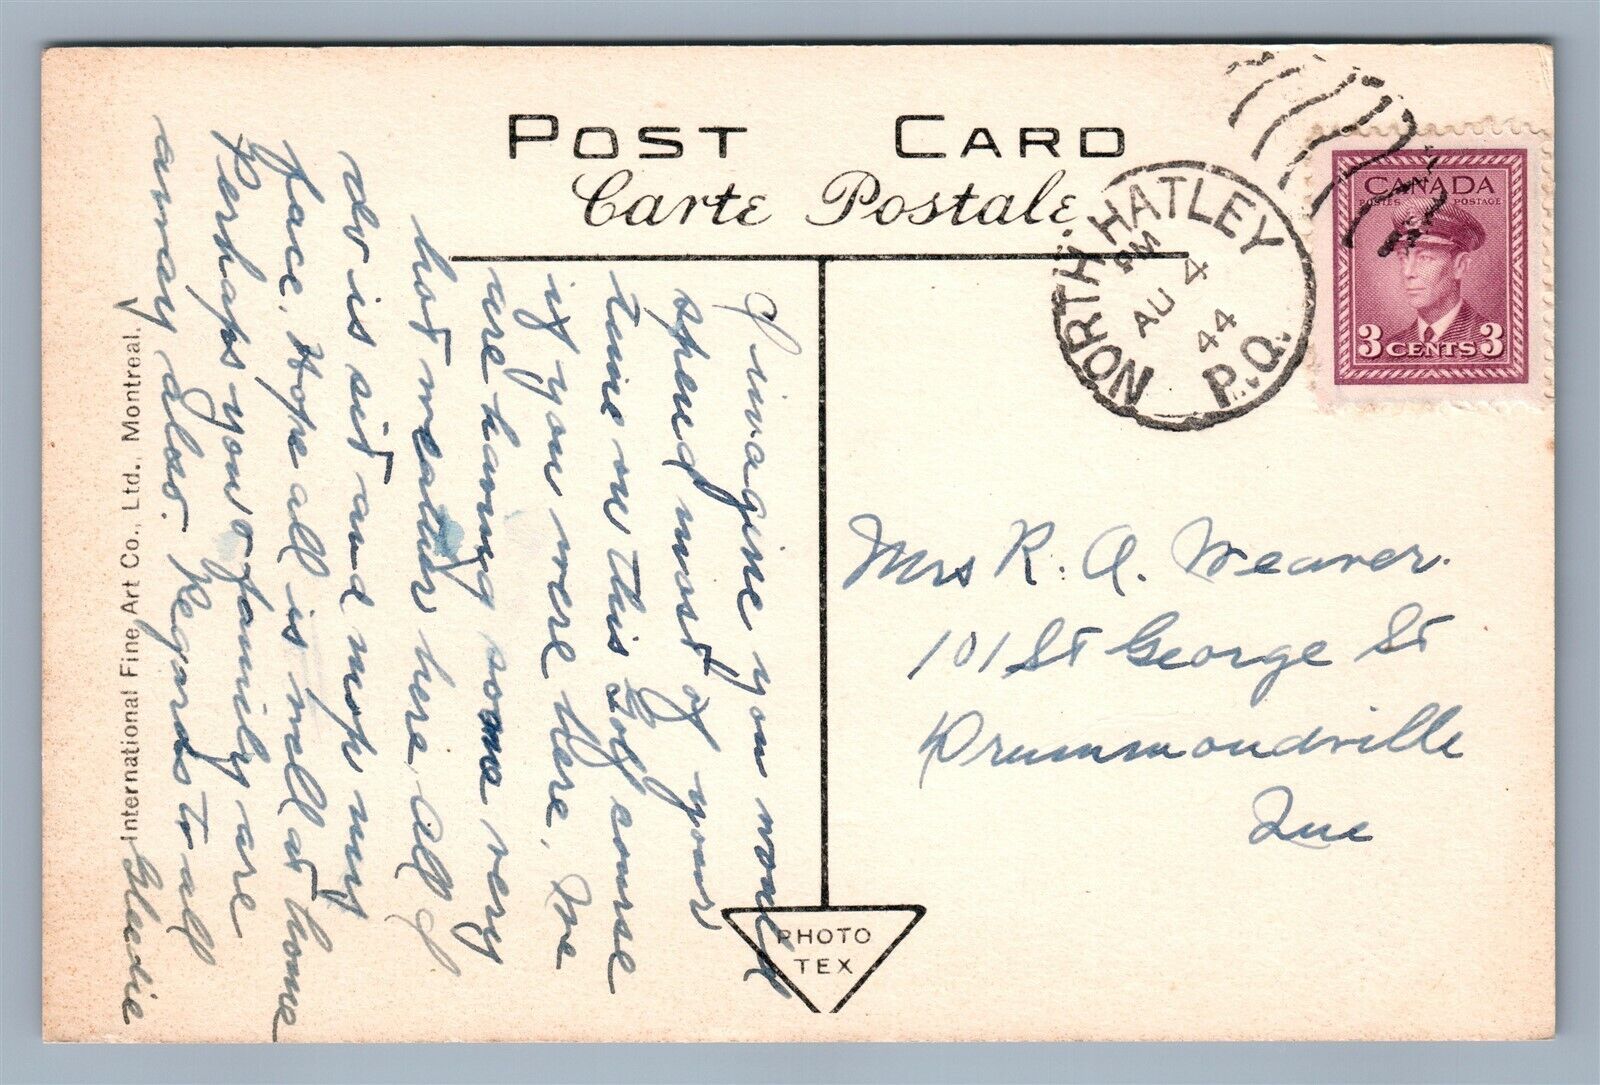 POST CARD
Carte Postale
NORTH HATLEY
PM
AU 4
44
P.Q.
CANADA
POSTES POSTAGE
3 CENTS 3
I imagine you would
spend most of your
time on this Golf course
if you were here. We
are having some very
hot weather here. All I
do is sit and mop my
face. Hope all is well at home
Perhaps you & family are
away also. Regards to all
Gladie
Mrs R. A. Weaver.
101 St George St
Drummondville
Que
PHOTO
TEX
International Fine Art Co., Ltd., Montreal.